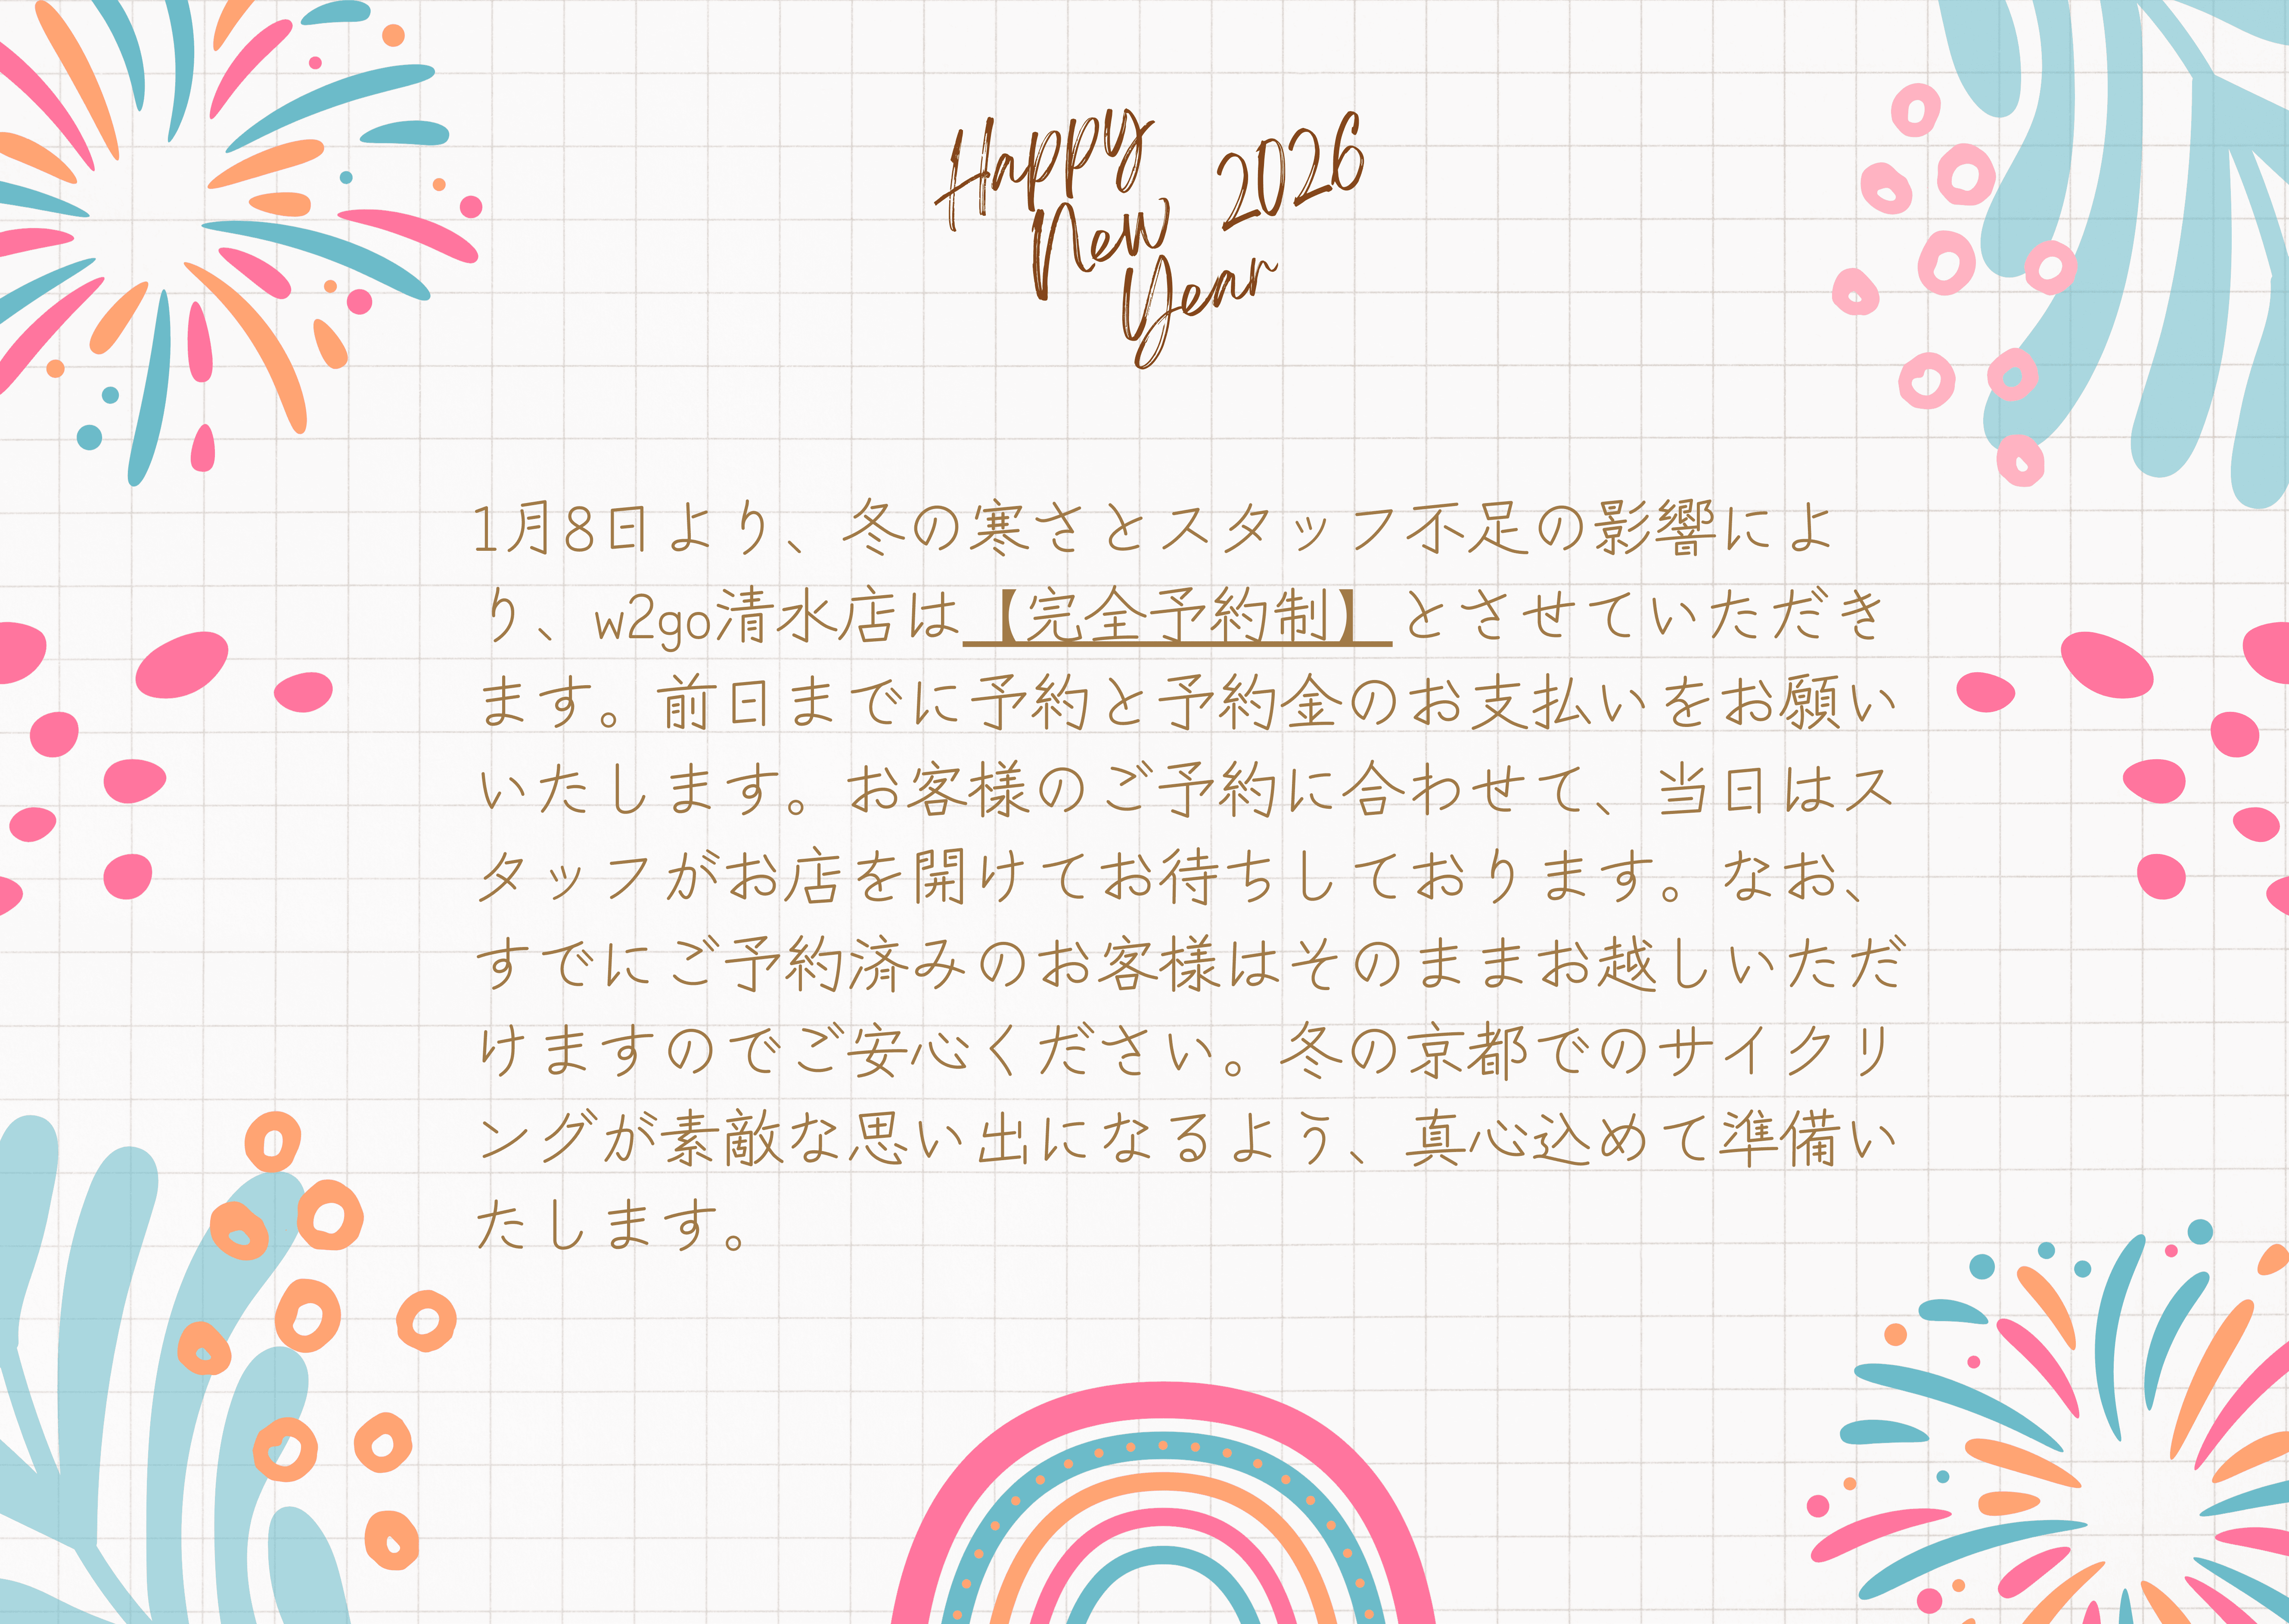 Happy
New 2026
Year
1月8日より、冬の寒さとスタッフ不足の影響によ
り、w2go清水店は【完全予約制】とさせていただき
ます。前日までに予約と予約金のお支払いをお願い
いたします。お客様のご予約に合わせて、当日はス
タッフがお店を開けてお待ちしております。なお、
すでにご予約済みのお客様はそのままお越しいただ
けますのでご安心ください。冬の京都でのサイクリ
ングが素敵な思い出になるよう、真心込めて準備い
たします。